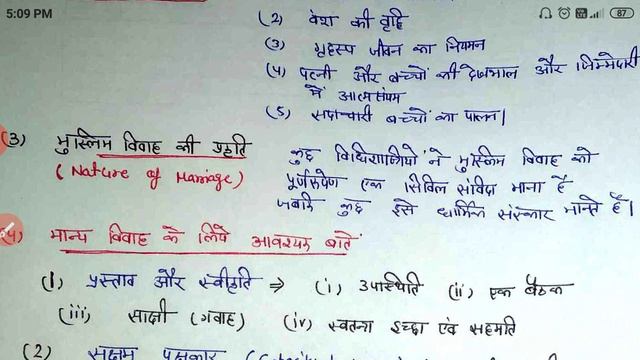 5:09 PM 87
(2) वंश की वृद्धि
(3) गृहस्थ जीवन का नियमन
(4) पत्नी और बच्चों की देखभाल और जिम्मेदारी
में आत्मसंयम
(5) सदाचारी बच्चों का पालन।
(3) मुस्लिम विवाह की प्रकृति
(Nature of Marriage)
कुछ विधिशास्त्रियों ने मुस्लिम विवाह को
पूर्णरूपेण एक सिविल संविदा माना है
जबकि कुछ इसे धार्मिक संस्कार मानते हैं।
4) मान्य विवाह के लिये आवश्यक बातें
(1) प्रस्ताव और स्वीकृति ⇒ (i) उपस्थिति (ii) एक बैठक
(iii) साक्षी (गवाह) (iv) स्वतन्त्र इच्छा एवं सहमति
(2) सक्षम पक्षकार